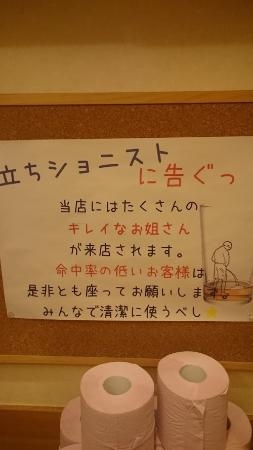 立ちショニスト
に告ぐっ
当店にはたくさんの
キレイなお姐さん
が来店されます。
命中率の低いお客様は
是非とも座ってお願いします。
みんなで清潔に使うべし